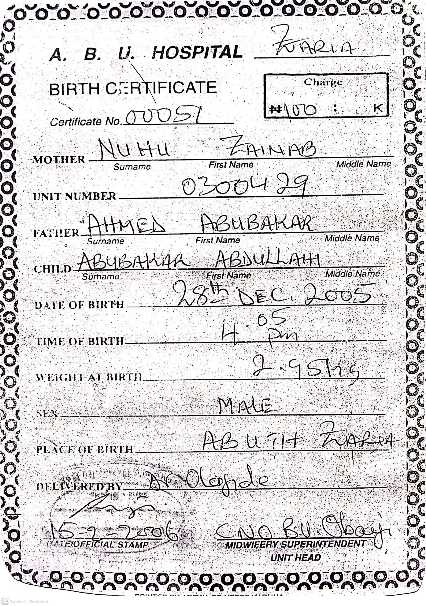 A. B. U. HOSPITAL ZARIA
BIRTH CERTIFICATE
Charge
₦100 : K
Certificate No. 00051
MOTHER NUHU ZAINAB
Surname First Name Middle Name
UNIT NUMBER 0300429
FATHER AHMED ABUBAKAR
Surname First Name Middle Name
CHILD ABUBAKAR ABDULLAHI
Surname First Name Middle Name
DATE OF BIRTH 28th DEC. 2005
TIME OF BIRTH 4.05 pm
WEIGHT AT BIRTH 2.95kg
SEX MALE
PLACE OF BIRTH ABUTH ZARIA
DELIVERED BY Dr
15-2-2006 CNO
DATE/OFFICIAL STAMP MIDWIFERY SUPERINTENDENT
UNIT HEAD